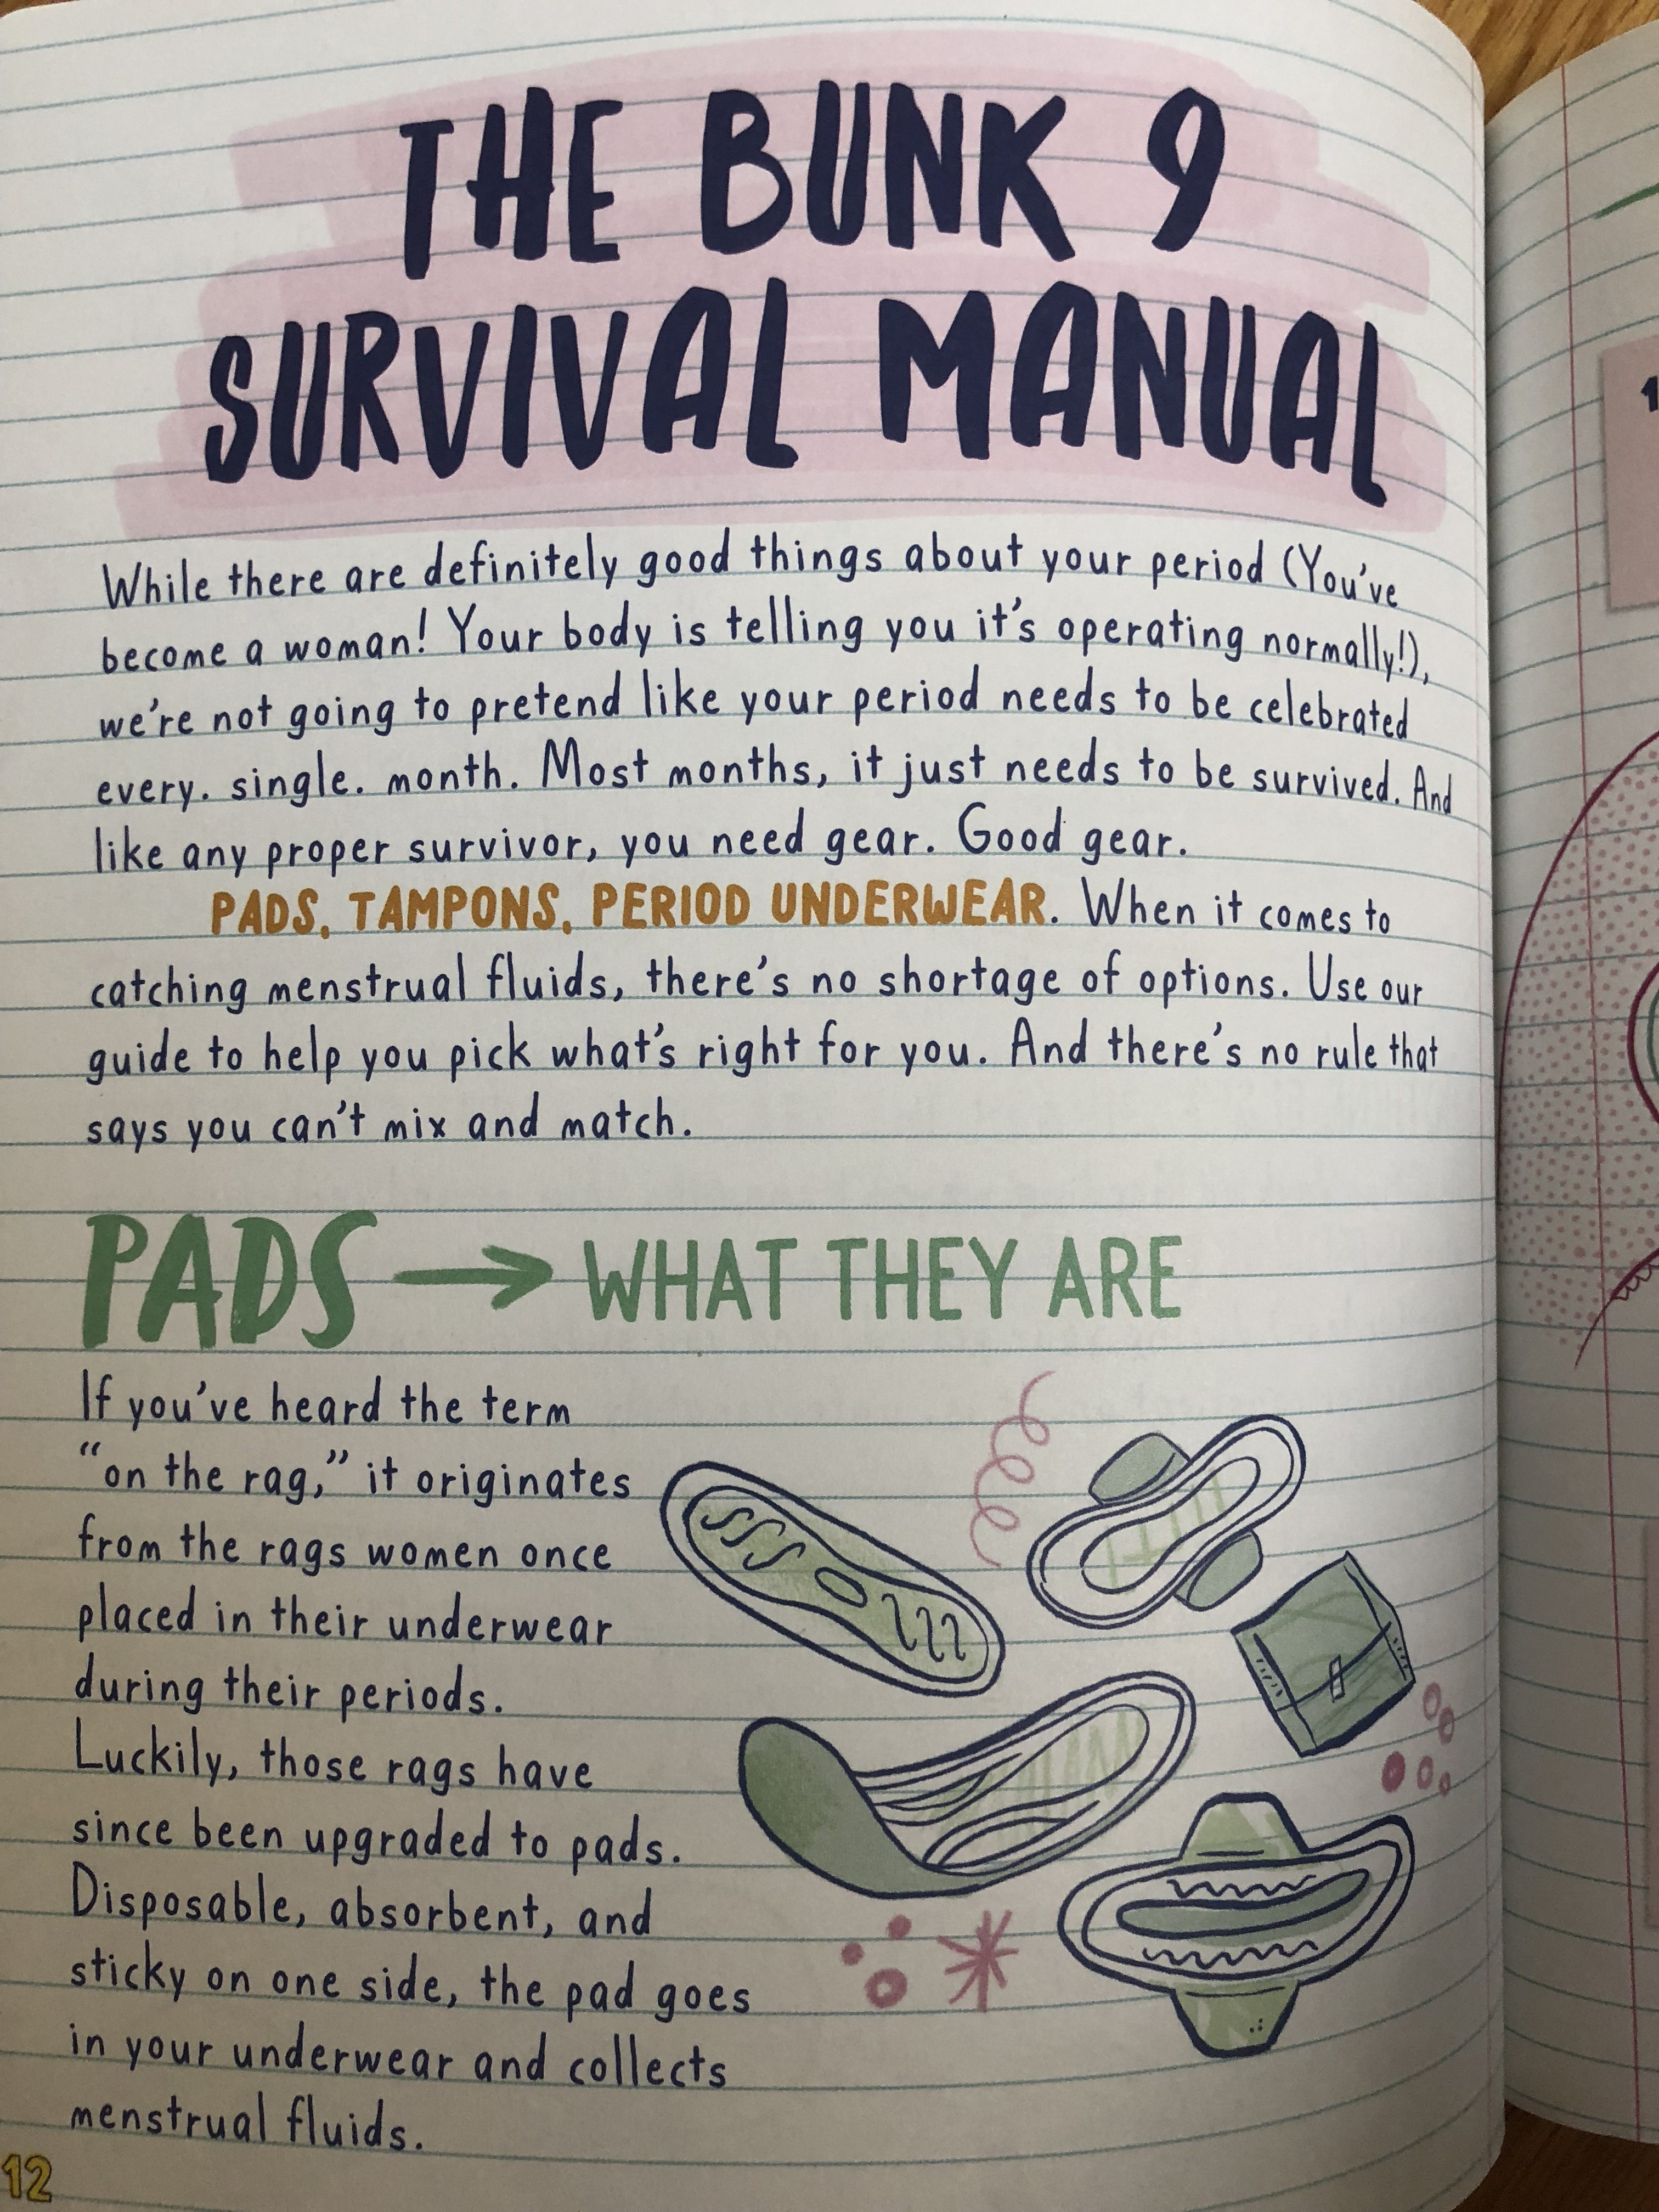 THE BUNK 9
SURVIVAL MANUAL
While there are definitely good things about your period (You've
become a woman! Your body is telling you it's operating normally!),
we're not going to pretend like your period needs to be celebrated
every. single. month. Most months, it just needs to be survived. And
like any proper survivor, you need gear. Good gear.
PADS, TAMPONS, PERIOD UNDERWEAR. When it comes to
catching menstrual fluids, there's no shortage of options. Use our
guide to help you pick what's right for you. And there's no rule that
says you can't mix and match.
PADS → WHAT THEY ARE
If you've heard the term
“on the rag,” it originates
from the rags women once
placed in their underwear
during their periods.
Luckily, those rags have
since been upgraded to pads.
Disposable, absorbent, and
sticky on one side, the pad goes
in your underwear and collects
menstrual fluids.
12